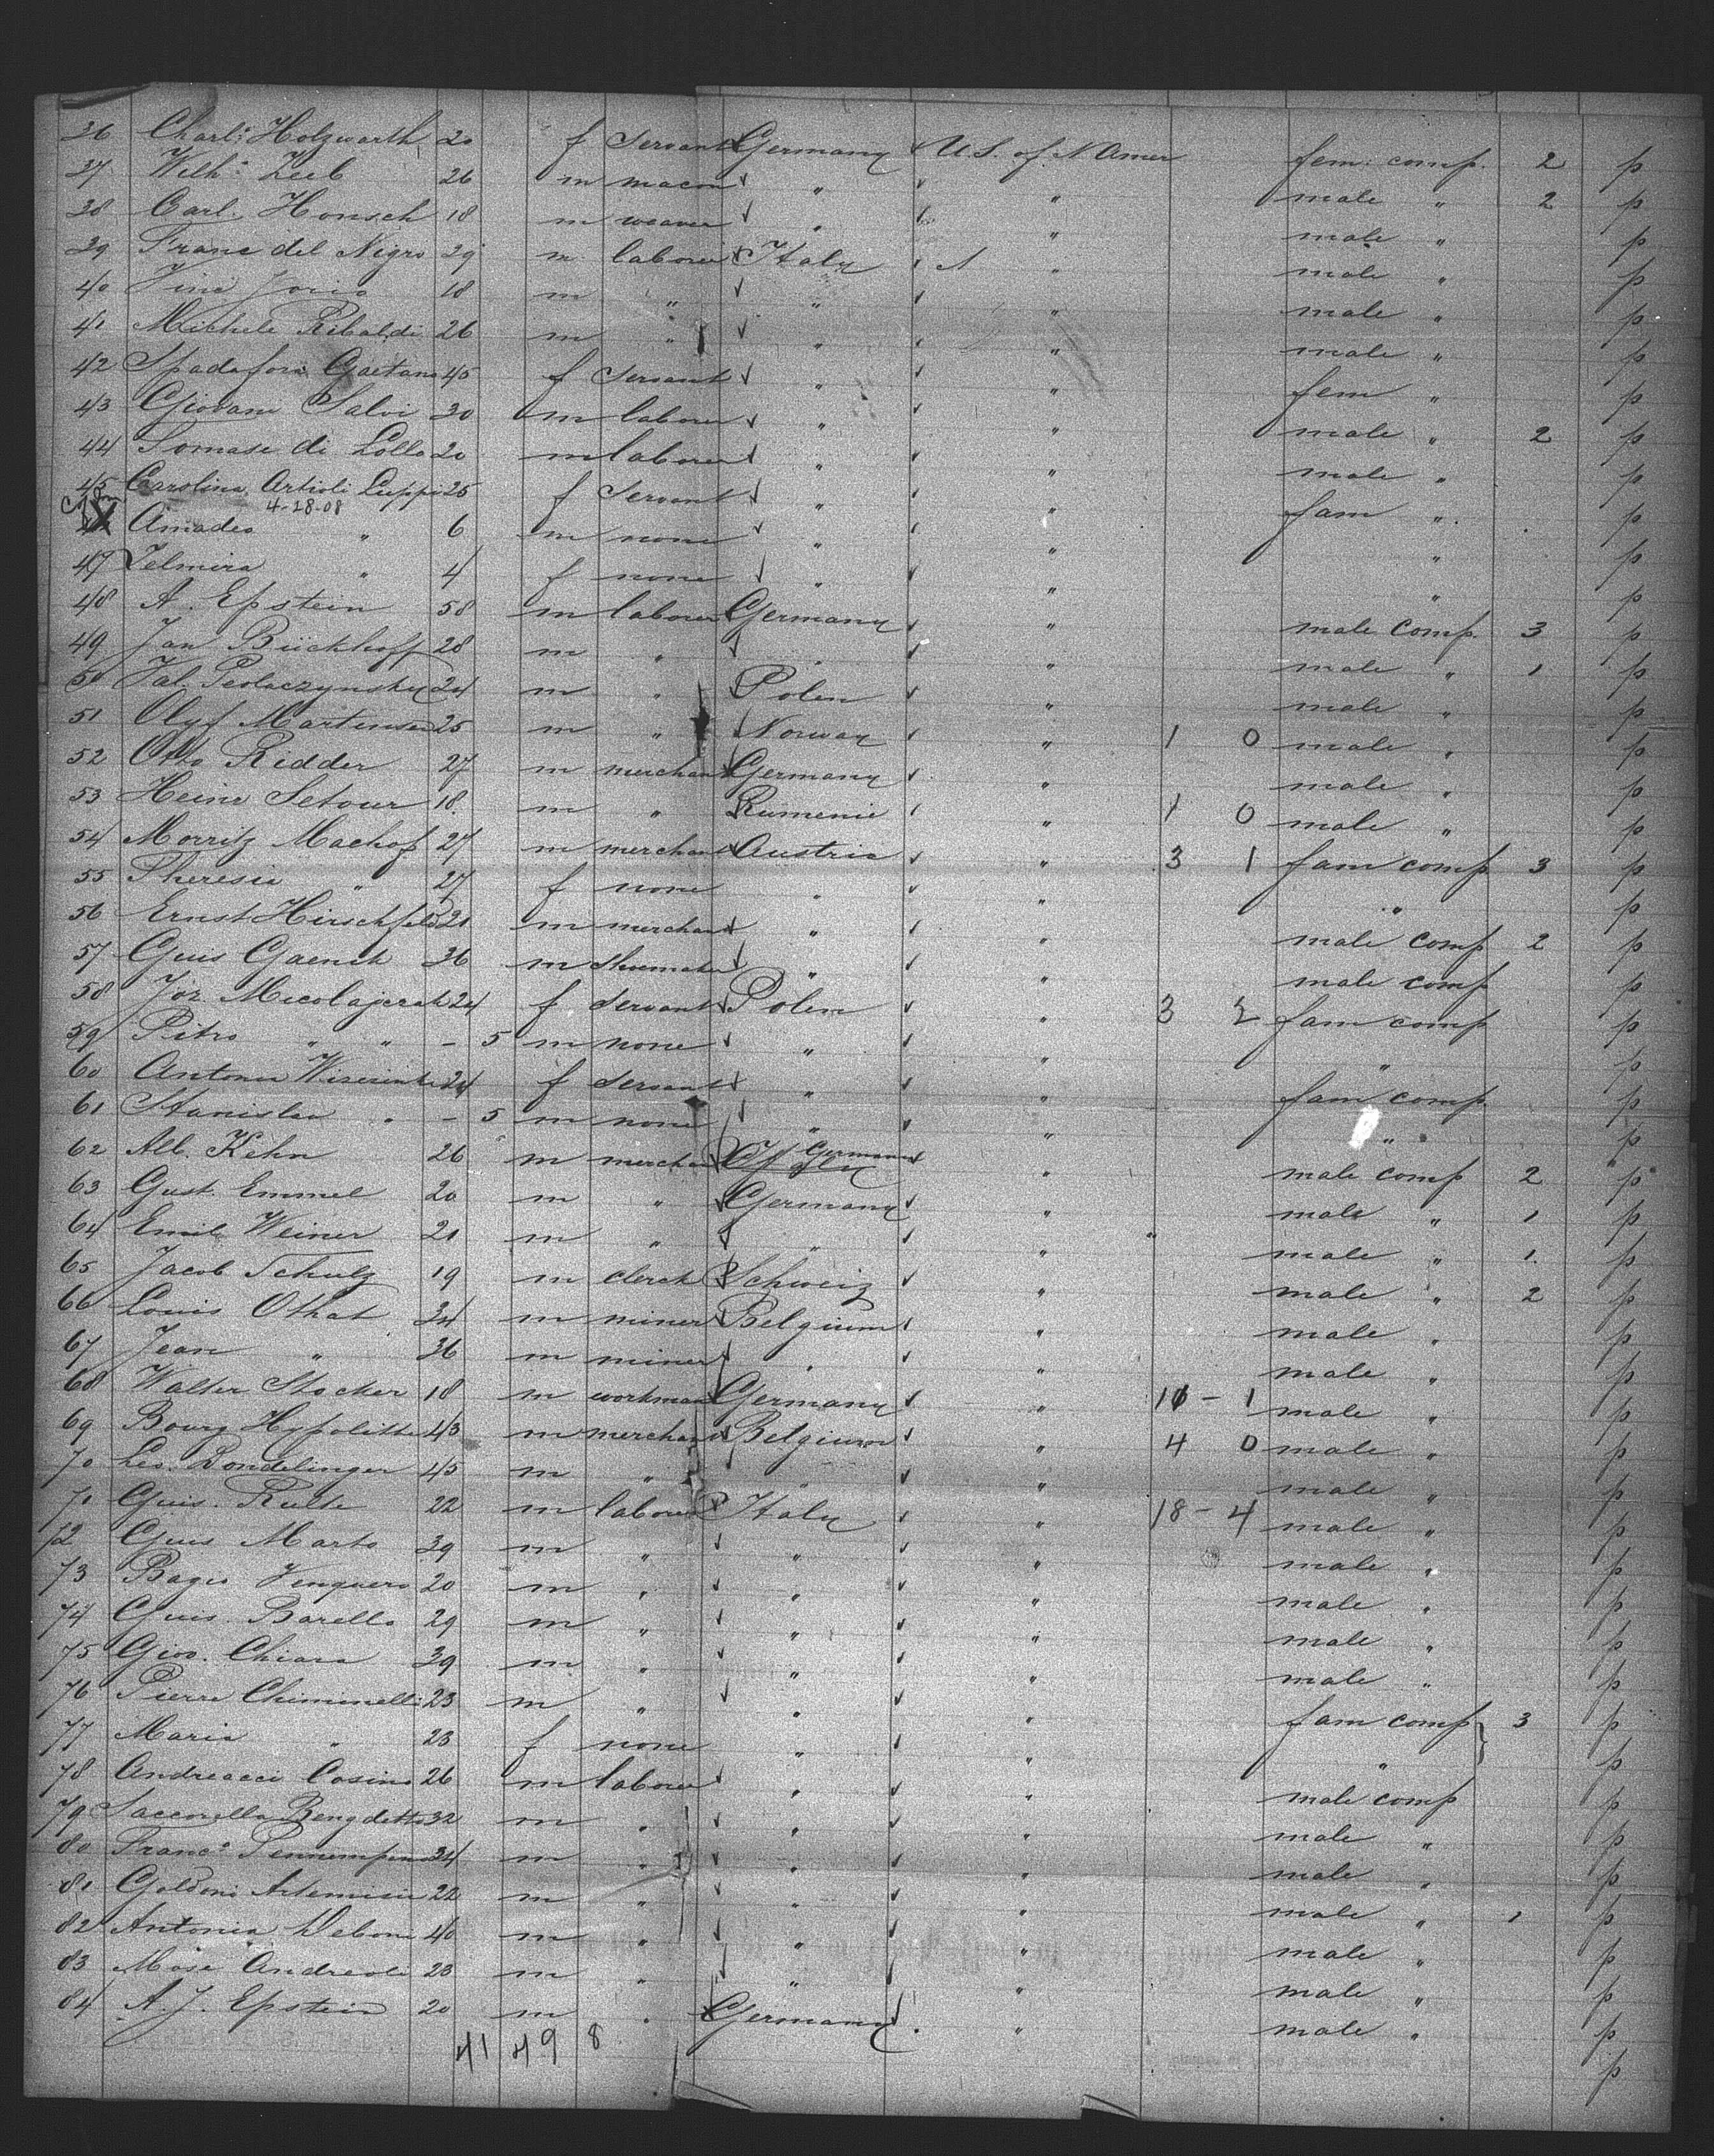 36 Charl: Holzwarth 20 f Servant Germany U.S. of N Amer fem: comp. 2 p
37 Wilh: Zeeb 26 m macon " " male " 2 p
38 Carl. Honsch 18 m weaver " " male " p
39 Franc del Nigro 29 m laborer Italy " male " p
40 Vinc Jorio 18 m " " " male " p
41 Michele Ribaldi 26 m " " " male " p
42 Spadafora Gaetana 45 f Servant " " fem " p
43 Giovani Salvi 30 m laborer " " male " 2 p
44 Tomase di Lollo 20 m laborer " " male " p
45 Carolina Artioli Luppi 25 f Servant " " fam " p
4-28-08
Amadeo " 6 m none " " " p
47 Zelmira " 4 f none " " " p
48 A. Epstein 58 m laborer Germany " male comp. 3 p
49 Jan Bückhoff 28 m " " " male " 1 p
50 Val. 24 m " Polen " male " p
51 Olyf Martensen 25 m " Norway " 1 0 male " p
52 Otto Ridder 27 m merchant Germany " male " p
53 Heinr Setour 18 m " Rumenie " 1 0 male " p
54 Morritz Machof 27 m merchant Austria " 3 1 fam comp 3 p
55 Theresia " 27 f none " " " p
56 Ernst Hirschfeld 21 m merchant " " male comp 2 p
57 Guis Gaensh 36 m shoemaker " " male comp p
58 Joz Micolajczak 24 f servant Polen " 3 2 fam comp p
59 Pitro " " - 5 m none " " " p
60 Antonia 24 f servant " " fam comp p
61 Stanislaw " - 5 m none " " " p
62 Alb. Kehn 26 m merchant Italy Germany " male comp 2 p
63 Gust. Emmel 20 m " Germany " male " 1 p
64 Emil Weiner 21 m " " " " male " 1. p
65 Jacob Schulz 19 m clerck Schweiz " male " 2 p
66 Louis Othat 34 m miner Belgium " male " p
67 Jean " 36 m miner " " male " p
68 Walter Stocker 18 m workman Germany " 10 - 1 male " p
69 Bourg Hypolitte 43 m merchant Belgium " 4 0 male " p
70 Leo. Bondelinger 45 m " " male " p
71 Guis. Rulle 22 m laborer Italy " 18 - 4 male " p
72 Guis Marto 39 m " " " male " p
73 Bagio 20 m " " " male " p
74 Guis. Barello 29 m " " " male " p
75 Giov. Chiara 39 m " " " male " p
76 Pierre Chiminelli 23 m " " " fam comp 3 p
77 Maria " 23 f none " " " p
78 Andreacci Cosimo 26 m laborer " " male comp p
79 Saccorella Bengdetto 32 m " " " male " p
80 Franc° 34 m " " " male " p
81 Goldoni Artemisio 22 m " " " male " 1 p
82 Antonia Deboni 40 m " " " male " p
83 Mose Andreoli 23 m " " " male " p
84 A. J. Epstein 20 m " Germany " male " p
p
41 49 8